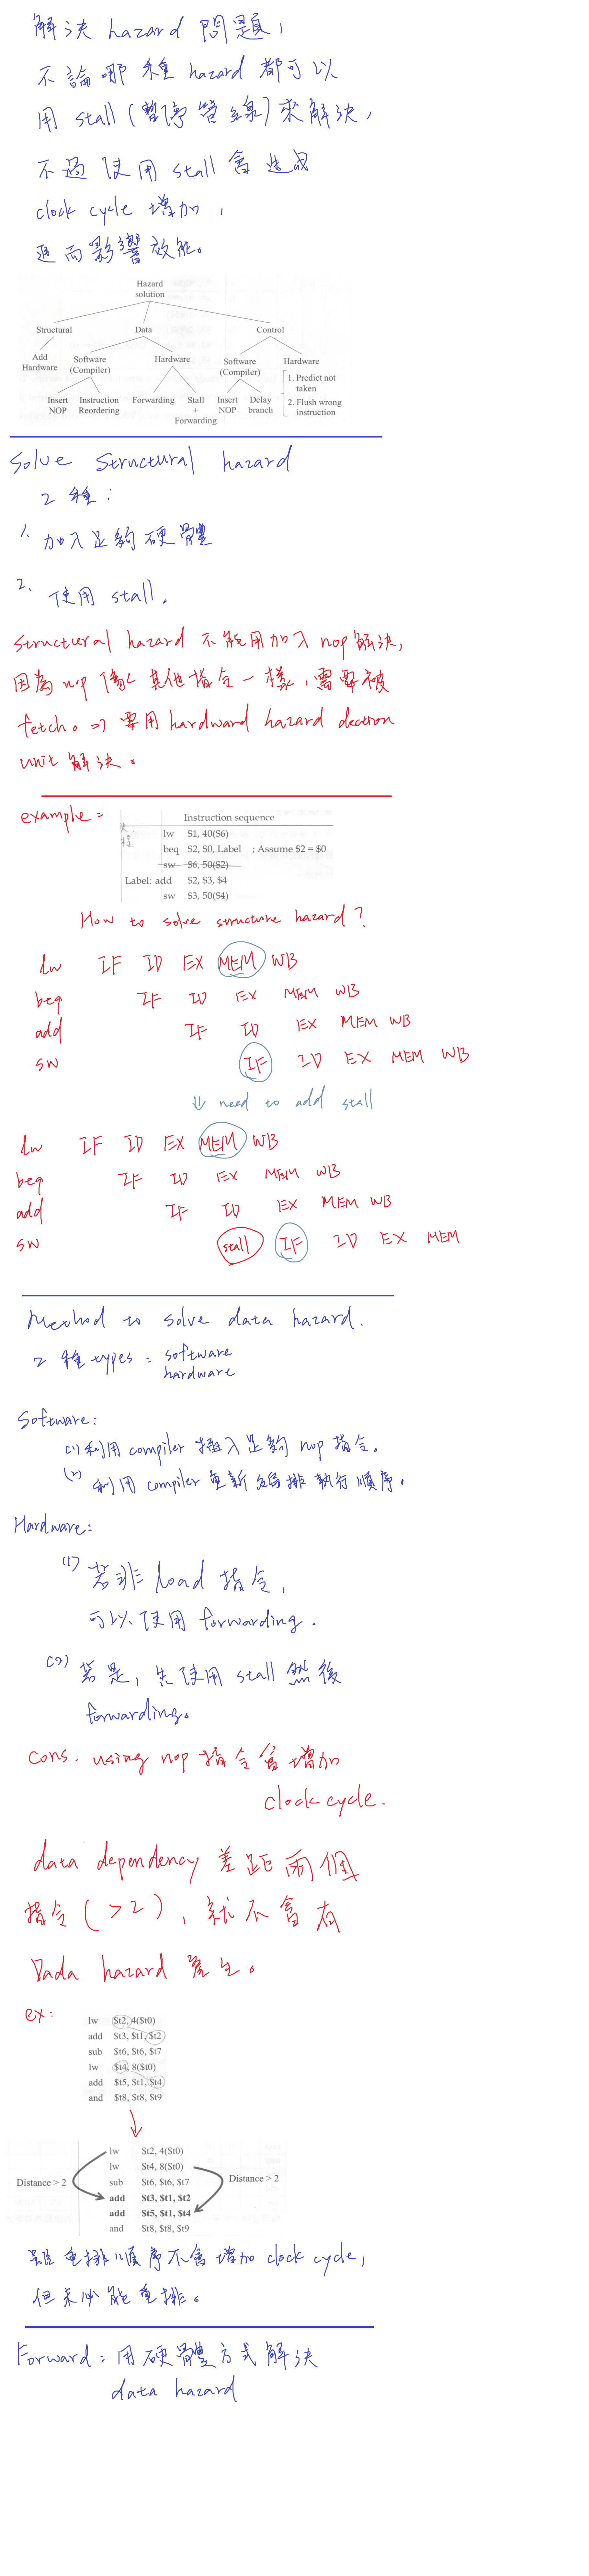 解決 hazard 問題，
不論哪種 hazard 都可以
用 stall (暫停管線) 來解決，
不過使用 stall 會造成
clock cycle 增加，
進而影響效能。
Hazard
solution
Structural Data Control
Add
Hardware
Software
(Compiler)
Hardware
Software
(Compiler)
Hardware
Insert
NOP
Instruction
Reordering
Forwarding
Stall
+
Forwarding
Insert
NOP
Delay
branch
1. Predict not
taken
2. Flush wrong
instruction
Solve Structural hazard
2 種：
1. 加入足夠硬體
2. 使用 stall.
Structural hazard 不能用加入 nop 解決，
因為 nop 像其他指令一樣，需要被
fetch。=> 要用 hardward hazard dection
unit 解決。
example =
Instruction sequence
lw $1, 40($6)
beq $2, $0, Label ; Assume $2 = $0
sw $6, 50($2)
Label: add $2, $3, $4
sw $3, 50($4)
How to solve structure hazard?
lw IF ID EX MEM WB
beq IF ID EX MEM WB
add IF ID EX MEM WB
sw IF ID EX MEM WB
⇓ need to add stall
lw IF ID EX MEM WB
beq IF ID EX MEM WB
add IF ID EX MEM WB
sw stall IF ID EX MEM
Method to solve data hazard.
2 種 types = software
hardware
Software:
(1) 利用 compiler 插入足夠 nop 指令。
(2) 利用 compiler 重新編排執行順序。
Hardware:
(1) 若非 load 指令，
可以使用 forwarding.
(2) 若是，先使用 stall 然後
forwarding。
cons. using nop 指令會增加
clock cycle.
data dependency 差距兩個
指令 ( >2 )，就不會有
Dada hazard 產生。
ex:
lw $t2, 4($t0)
add $t3, $t1, $t2
sub $t6, $t6, $t7
lw $t4, 8($t0)
add $t5, $t1, $t4
and $t8, $t8, $t9
lw $t2, 4($t0)
lw $t4, 8($t0)
Distance > 2 sub $t6, $t6, $t7 Distance > 2
add $t3, $t1, $t2
add $t5, $t1, $t4
and $t8, $t8, $t9
雖重排順序不會增加 clock cycle，
但未必能重排。
Forward = 用硬體方式解決
data hazard